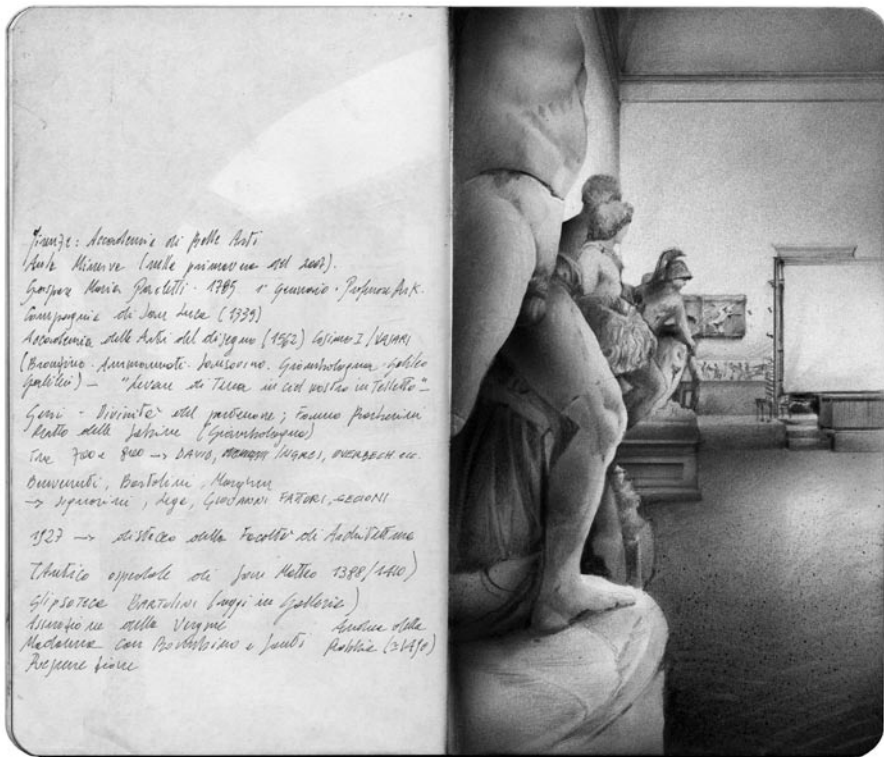 Firenze: Accademia di Belle Arti
Aula Minerva (nella primavera del 2007).
Gaspare Maria Paoletti - 1785 1° Gennaio - Professore Ark.
Compagnia di San Luca (1339)
Accademia delle Arti del disegno (1562) Cosimo I / VASARI
(Bronzino - Ammannati - Sansovino - Giambologna - Galileo
Galilei) - "Levare di Terra in ciel nostro intelletto" -
Gessi - Divinità del partenone; Fauno Barberini
Ratto delle Sabine (Giambologna)
Tra 700 e 800 → DAVID, INGRES, OVERBECH ecc.
Benvenuti, Bartolini, Morghen
→ Signorini, Lega, GIOVANNI FATTORI, CECIONI
1927 → distacco della Facoltà di Architettura
(Antico ospedale di San Matteo 1388/1410)
Glipsoteca BARTOLINI (oggi in Galleria)
Assunzione della Vergine Andrea della
Madonna con Bambino e Santi Robbia